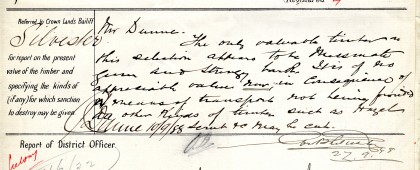 Referred to Crown Lands Bailiff
Silvester
for report on the present
value of the timber and
specifying the kinds of
(if any) for which sanction
to destroy may be given.
Mr Dunne.
The only valuable timber on
this selection appears to be Messmate
Gum and Stringy bark. It is of no
appreciable value now, in consequence
of means of transport not being provided
The other kinds of timber such as Hazel
Scrub &c may be cut.
Dunne 10/9/88
27.9.88
Report of District Officer.